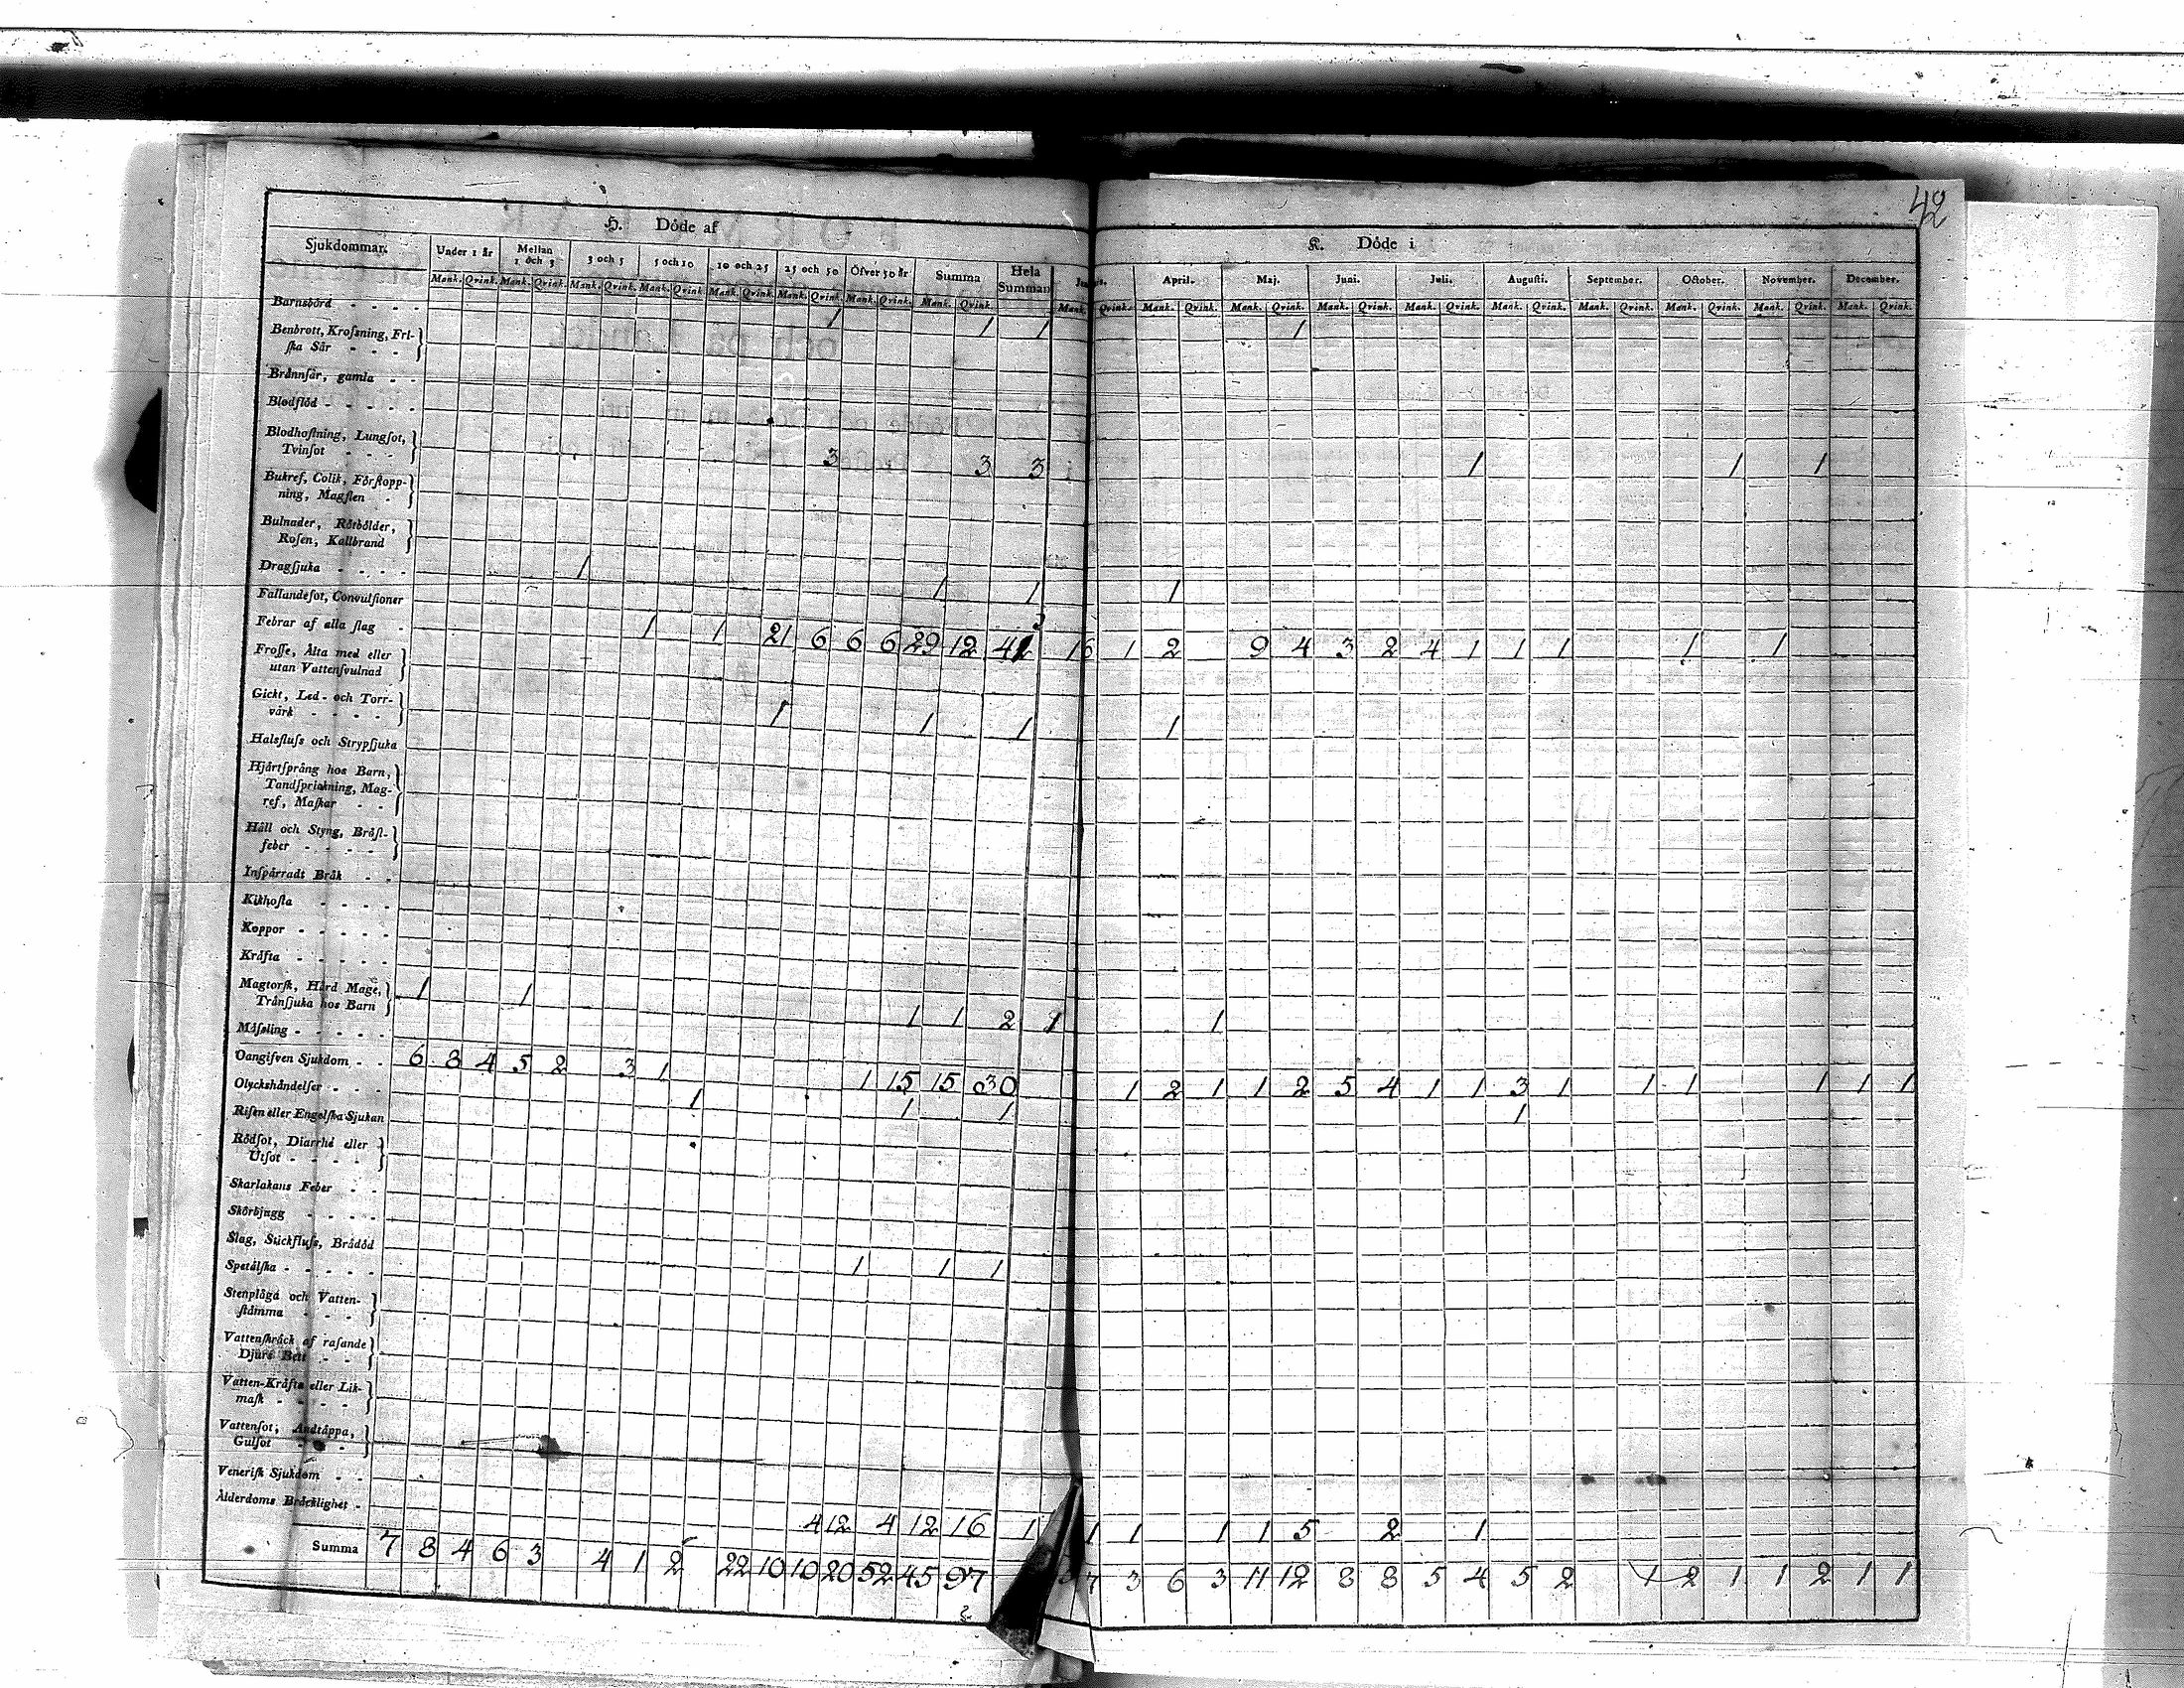 42
H. Döde af
K. Döde i
Sjukdommar. Under 1 år Mellan 1 och 3 3 och 5 5 och 10 10 och 25 25 och 50 Öfver 50 år Summa Hela Summan
April. Maj. Juni. Juli. Augusti. September. October. November. December.
Mank. Qvink. Mank. Qvink. Mank. Qvink. Mank. Qvink. Mank. Qvink. Mank. Qvink. Mank. Qvink. Mank. Qvink. Mank. Qvink. Mank. Qvink. Mank. Qvink. Mank. Qvink. Mank. Qvink. Mank. Qvink. Mank. Qvink. Mank. Qvink. Mank. Qvink. Mank. Qvink.
Barnsbörd - - - 1 1 1 1
Benbrott, Krossning, Fri-
ska Sår - - -
Brännsår, gamla - -
Blodflöd - - - - -
Blodhostning, Lungsot,
Tvinsot - - - 3 3 3 1 1 1
Bukref, Colik, Förstopp-
ning, Magsten -
Bulnader, Rötbölder,
Rosen, Kallbrand
Dragsjuka - - - - 1 1 1 1
Fallandesot, Convulsioner
Febrar af alla slag - 1 1 21 6 6 6 29 12 1 2 9 4 3 2 4 1 1 1 1 1
Frossa, Älta med eller
utan Vattensvulnad
Gickt, Led- och Torr-
värk - - - - 1 1 1 1
Halsfluss och Strypsjuka
Hjärtsprång hos Barn,
Tandsprickning, Mag-
ref, Maskar - -
Håll och Styng, Bröst-
feber - - - -
Inspärradt Bråk - -
Kikhosta - - - -
Koppor - - - - -
Kräfta - - - - -
Magtorsk, Hård Mage,
Tränsjuka hos Barn 1 1 1 1 2 1 1
Mässling - - - - -
Oangifven Sjukdom - - 6 8 4 5 2 3 1 1 15 15 30 1 2 1 1 2 5 4 1 1 3 1 1 1 1 1 1
Olyckshändelser - - - 1 1 1 1
Risen eller Engelska Sjukan
Rödsot, Diarrhé eller
Utsot - - - -
Skarlakans Feber - -
Skörbjugg - - - -
Slag, Stickfluss, Brådöd
Spetälska - - - - - 1 1 1
Stenplåga och Vatten-
stämma - - -
Vattenskräck af rasande
Djurs Bett - -
Vatten-Kräfta eller Lik-
mask - - - -
Vattensot, Andtäppa,
Gulsot - - -
Venerisk Sjukdom - -
Ålderdoms Bräcklighet - 4 12 4 12 16 1 1 1 1 1 5 2 1
Summa 7 8 4 6 3 4 1 2 22 10 10 20 52 45 97 7 3 6 3 11 12 8 8 5 4 5 2 1 2 1 1 2 1 1